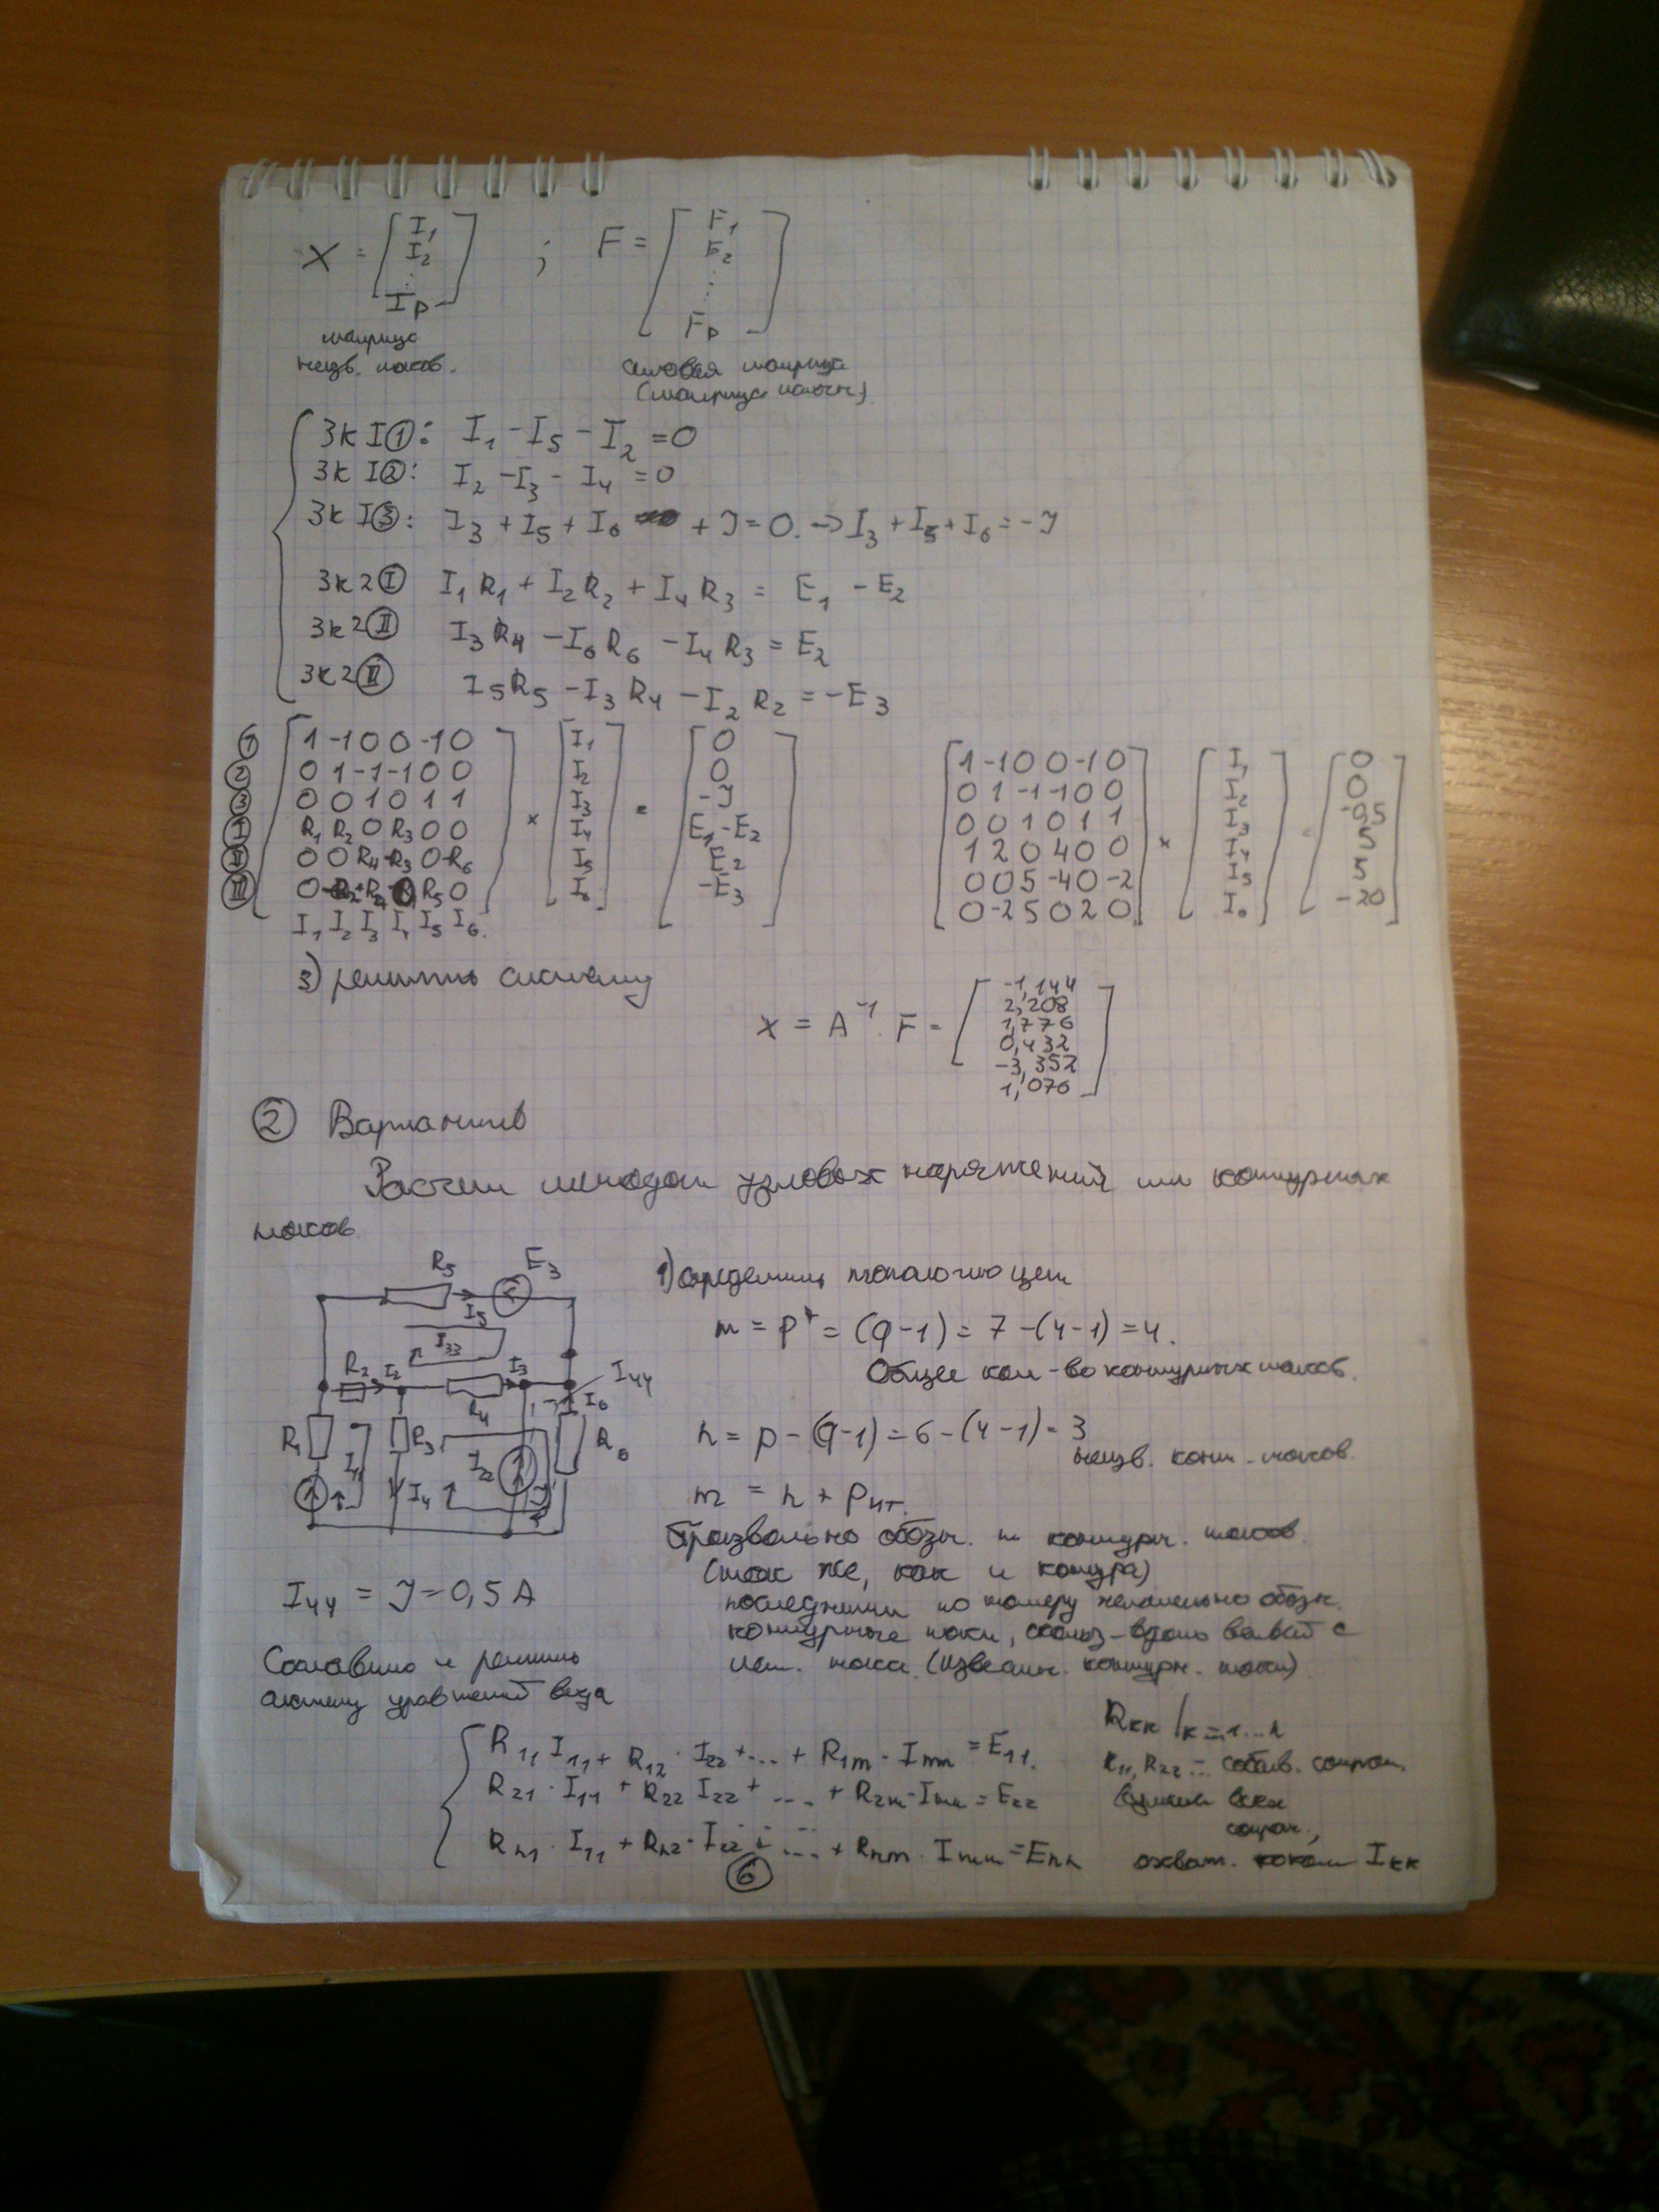 X = [ I₁ I₂ ⋮ Iₚ ] ; F = [ F₁ F₂ ⋮ Fₚ ]
матрица
неизв. токов.
силовая матрица
(матрица источн)
ЗкI①: I₁ - I₅ - I₂ = 0
ЗкI②: I₂ - I₃ - I₄ = 0
ЗкI③: I₃ + I₅ + I₆ + J = 0. → I₃ + I₅ + I₆ = -J
Зк2Ⓘ I₁R₁ + I₂R₂ + I₄R₃ = E₁ - E₂
Зк2Ⓘ︎Ⓘ I₃R₄ - I₆R₆ - I₄R₃ = E₂
Зк2 I₅R₅ - I₃R₄ - I₂R₂ = -E₃
① 1 -1 0 0 -1 0 × I₁ = 0
② 0 1 -1 -1 0 0 I₂ 0
③ 0 0 1 0 1 1 I₃ -J
I R₁ R₂ 0 R₃ 0 0 I₄ E₁-E₂
II 0 0 R₄ -R₃ 0 -R₆ I₅ E₂
III 0 -R₂ R₅ 0 I₆ -E₃
I₁ I₂ I₃ I₄ I₅ I₆.
1 -1 0 0 -1 0 × I₁ = 0
0 1 -1 -1 0 0 I₂ 0
0 0 1 0 1 1 I₃ -0,5
1 2 0 4 0 0 I₄ 5
0 0 5 -4 0 -2 I₅ 5
0 -2 5 0 2 0 I₆ -20
3) решить систему
X = A⁻¹·F = [ -1,144
2,208
1,776
0,432
-3,352
1,076 ]
② Вариантив
Расчет методом узловых напряжений или контурных
токов
R₅ E₃
I₅
I₃₃
R₂ I₂ I₃ I₄₄
R₄ I₆
R₁ R₃ R₆
I₂₂
I₄ J
1) определить топологию цепи
m = p* = (q-1) = 7 - (4-1) = 4.
Общее кол-во контурных токов.
n = p - (q-1) = 6 - (4-1) = 3
неизв. конт. токов
m = n + pит.
Произвольно обозн. m контурн. токов.
(так же, как и контура)
последними по номеру желательно обозн.
контурные токи, вдоль ветвей с
ист. тока (известн. контурн. токи)
I₄₄ = J = 0,5 A
Составить и решить
систему уравнений вида
R₁₁I₁₁ + R₁₂·I₂₂ + ... + R₁m·Imm = E₁₁.
R₂₁·I₁₁ + R₂₂I₂₂ + .... + R₂m·Imm = E₂₂
Rn₁·I₁₁ + Rn₂·I₂₂ + .... + Rnm·Imm = Enn
Rкк /к=1...n
R₁₁, R₂₂ - собств. сопрот.
сумма всех
сопр.,
охват. током Iкк
⑥